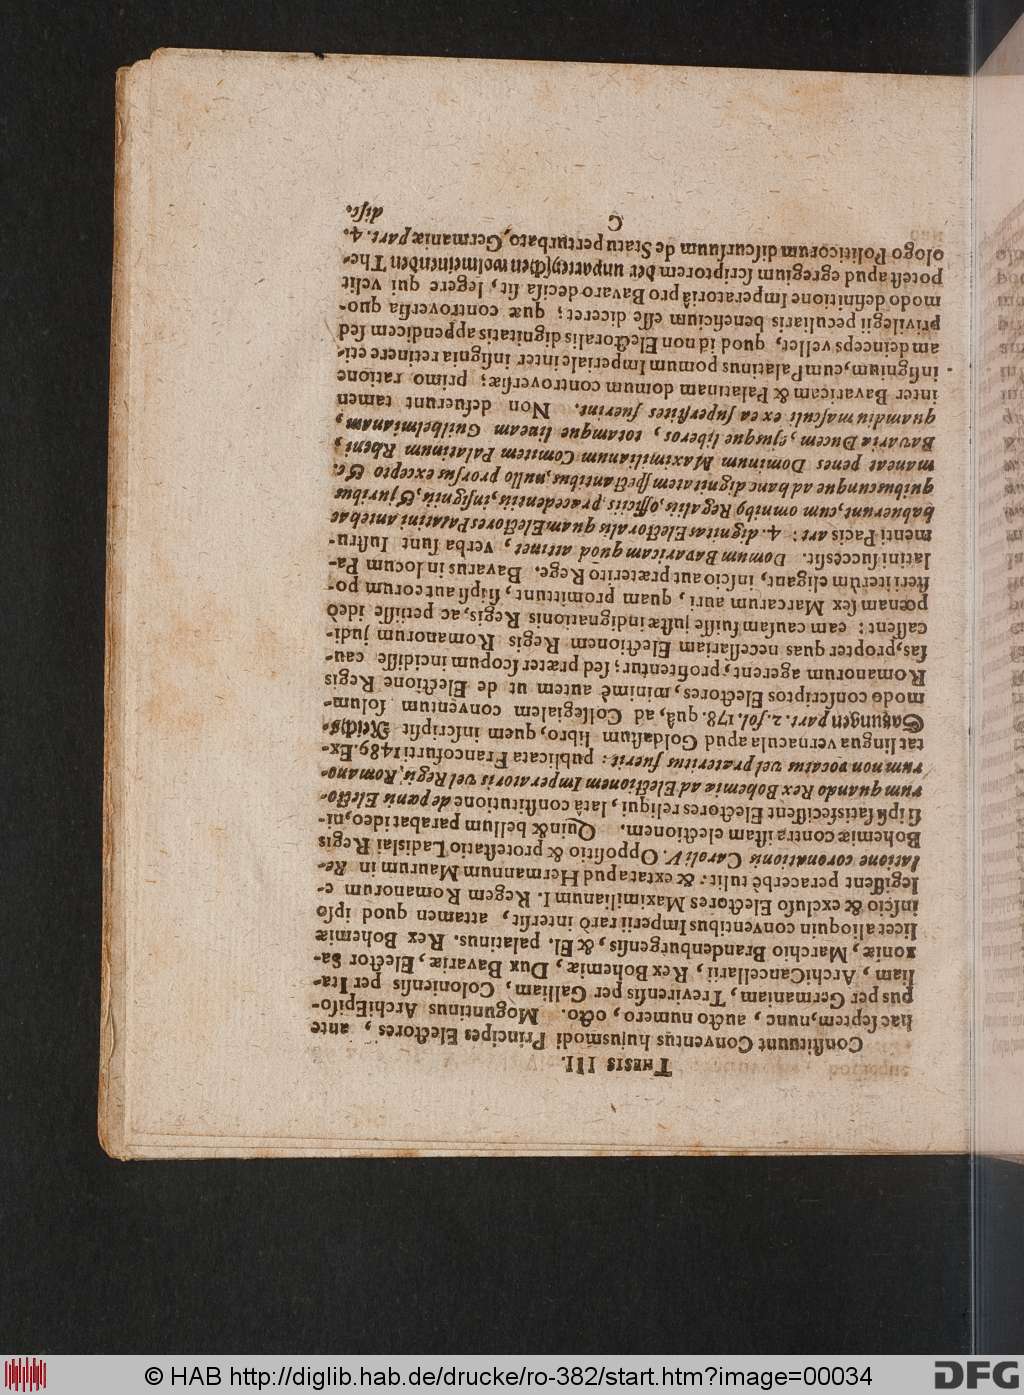 THESIS III.
Constituunt Conventus hujusmodi Principes Electores, ante
hac septem, nunc, aucto numero, octo. Moguntinus ArchiEpisco-
pus per Germaniam, Trevirensis per Galliam, Coloniensis per Ita-
liam, ArchiCancellarii, Rex Bohemiæ, Dux Bavariæ, Elector Sa-
xoniæ, Marchio Brandenburgensis, & El. palatinus. Rex Bohemiæ
licet alioquin conventibus Imperii rarò intersit, attamen quod ipso
inscio & excluso Electores Maximilianum I. Regem Romanorum e-
legissent peracerbè tulit: & extat apud Hermannum Maurum in Re-
latione coronationis Caroli V. Oppositio & protestatio Ladislai Regis
Bohemiæ contra istam electionem. Quin & bellum parabat ideo, ni-
si ipsi satisfecissent Electores reliqui, latâ constitutione de pœnis Electo-
rum quando Rex Bohemiæ ad Electionem Imperatoris vel Regis, Romano-
rum non vocatus vel præteritus fuerit: publicata Francofurti 1489. Ex-
tat lingua vernacula apud Goldastum libro, quem inscripsit Reichs-
Satzungen part. 2. fol. 178. quâ, ad Collegialem conventum solum-
modo conscriptos Electores, minimè autem ut de Electione Regis
Romanorum agerent, profitentur; sed præter scopum incidisse cau-
sas, propter quas necessariam Electionem Regis Romanorum judi-
cassent: eam causam fuisse justæ indignationis Regis, ac petiisse ideò
pœnam sex Marcarum auri, quam promittunt, si ipsi aut eorum po-
steri iterùm eligant, inscio aut præterito Rege. Bavarus in locum Pa-
latini successit. Domum Bavaricam quod attinet, verba sunt Instru-
menti Pacis art: 4. dignitas Electoralis quam Electores Palatini antehac
habuerunt, cum omnibꝰ Regaliis, officiis, præcedentiis, insigniis, & juribus
quibuscunque ad hanc dignitatem spectantibus, nullo prorsus excepto &c.
maneat penes Dominum Maximilianum Comitem Palatinum Rheni,
Bavariæ Ducem, ejusque liberos, totamque lineam Guilhelmianam,
quamdiu masculi ex ea superstites fuerint. Non defuerunt tamen
inter Bavaricam & Palatinam domum controversiæ; primo ratione
insignium, cum Palatinus pomum Imperiale inter insignia retinere eti-
am deinceps vellet, quod id non Electoralis dignitatis appendicem sed
privilegii peculiaris beneficium esse diceret; quæ controversia quo-
modo definitione Imperatoriâ pro Bavaro decisa sit, legere qui velit
potest apud egregium scriptorem der unparteyischen wolmeinenden The-
ologo Politicorum discursuum de Statu perturbato, Germaniæ part. 4.
C
disc.
© HAB http://diglib.hab.de/drucke/ro-382/start.htm?image=00034
DFG